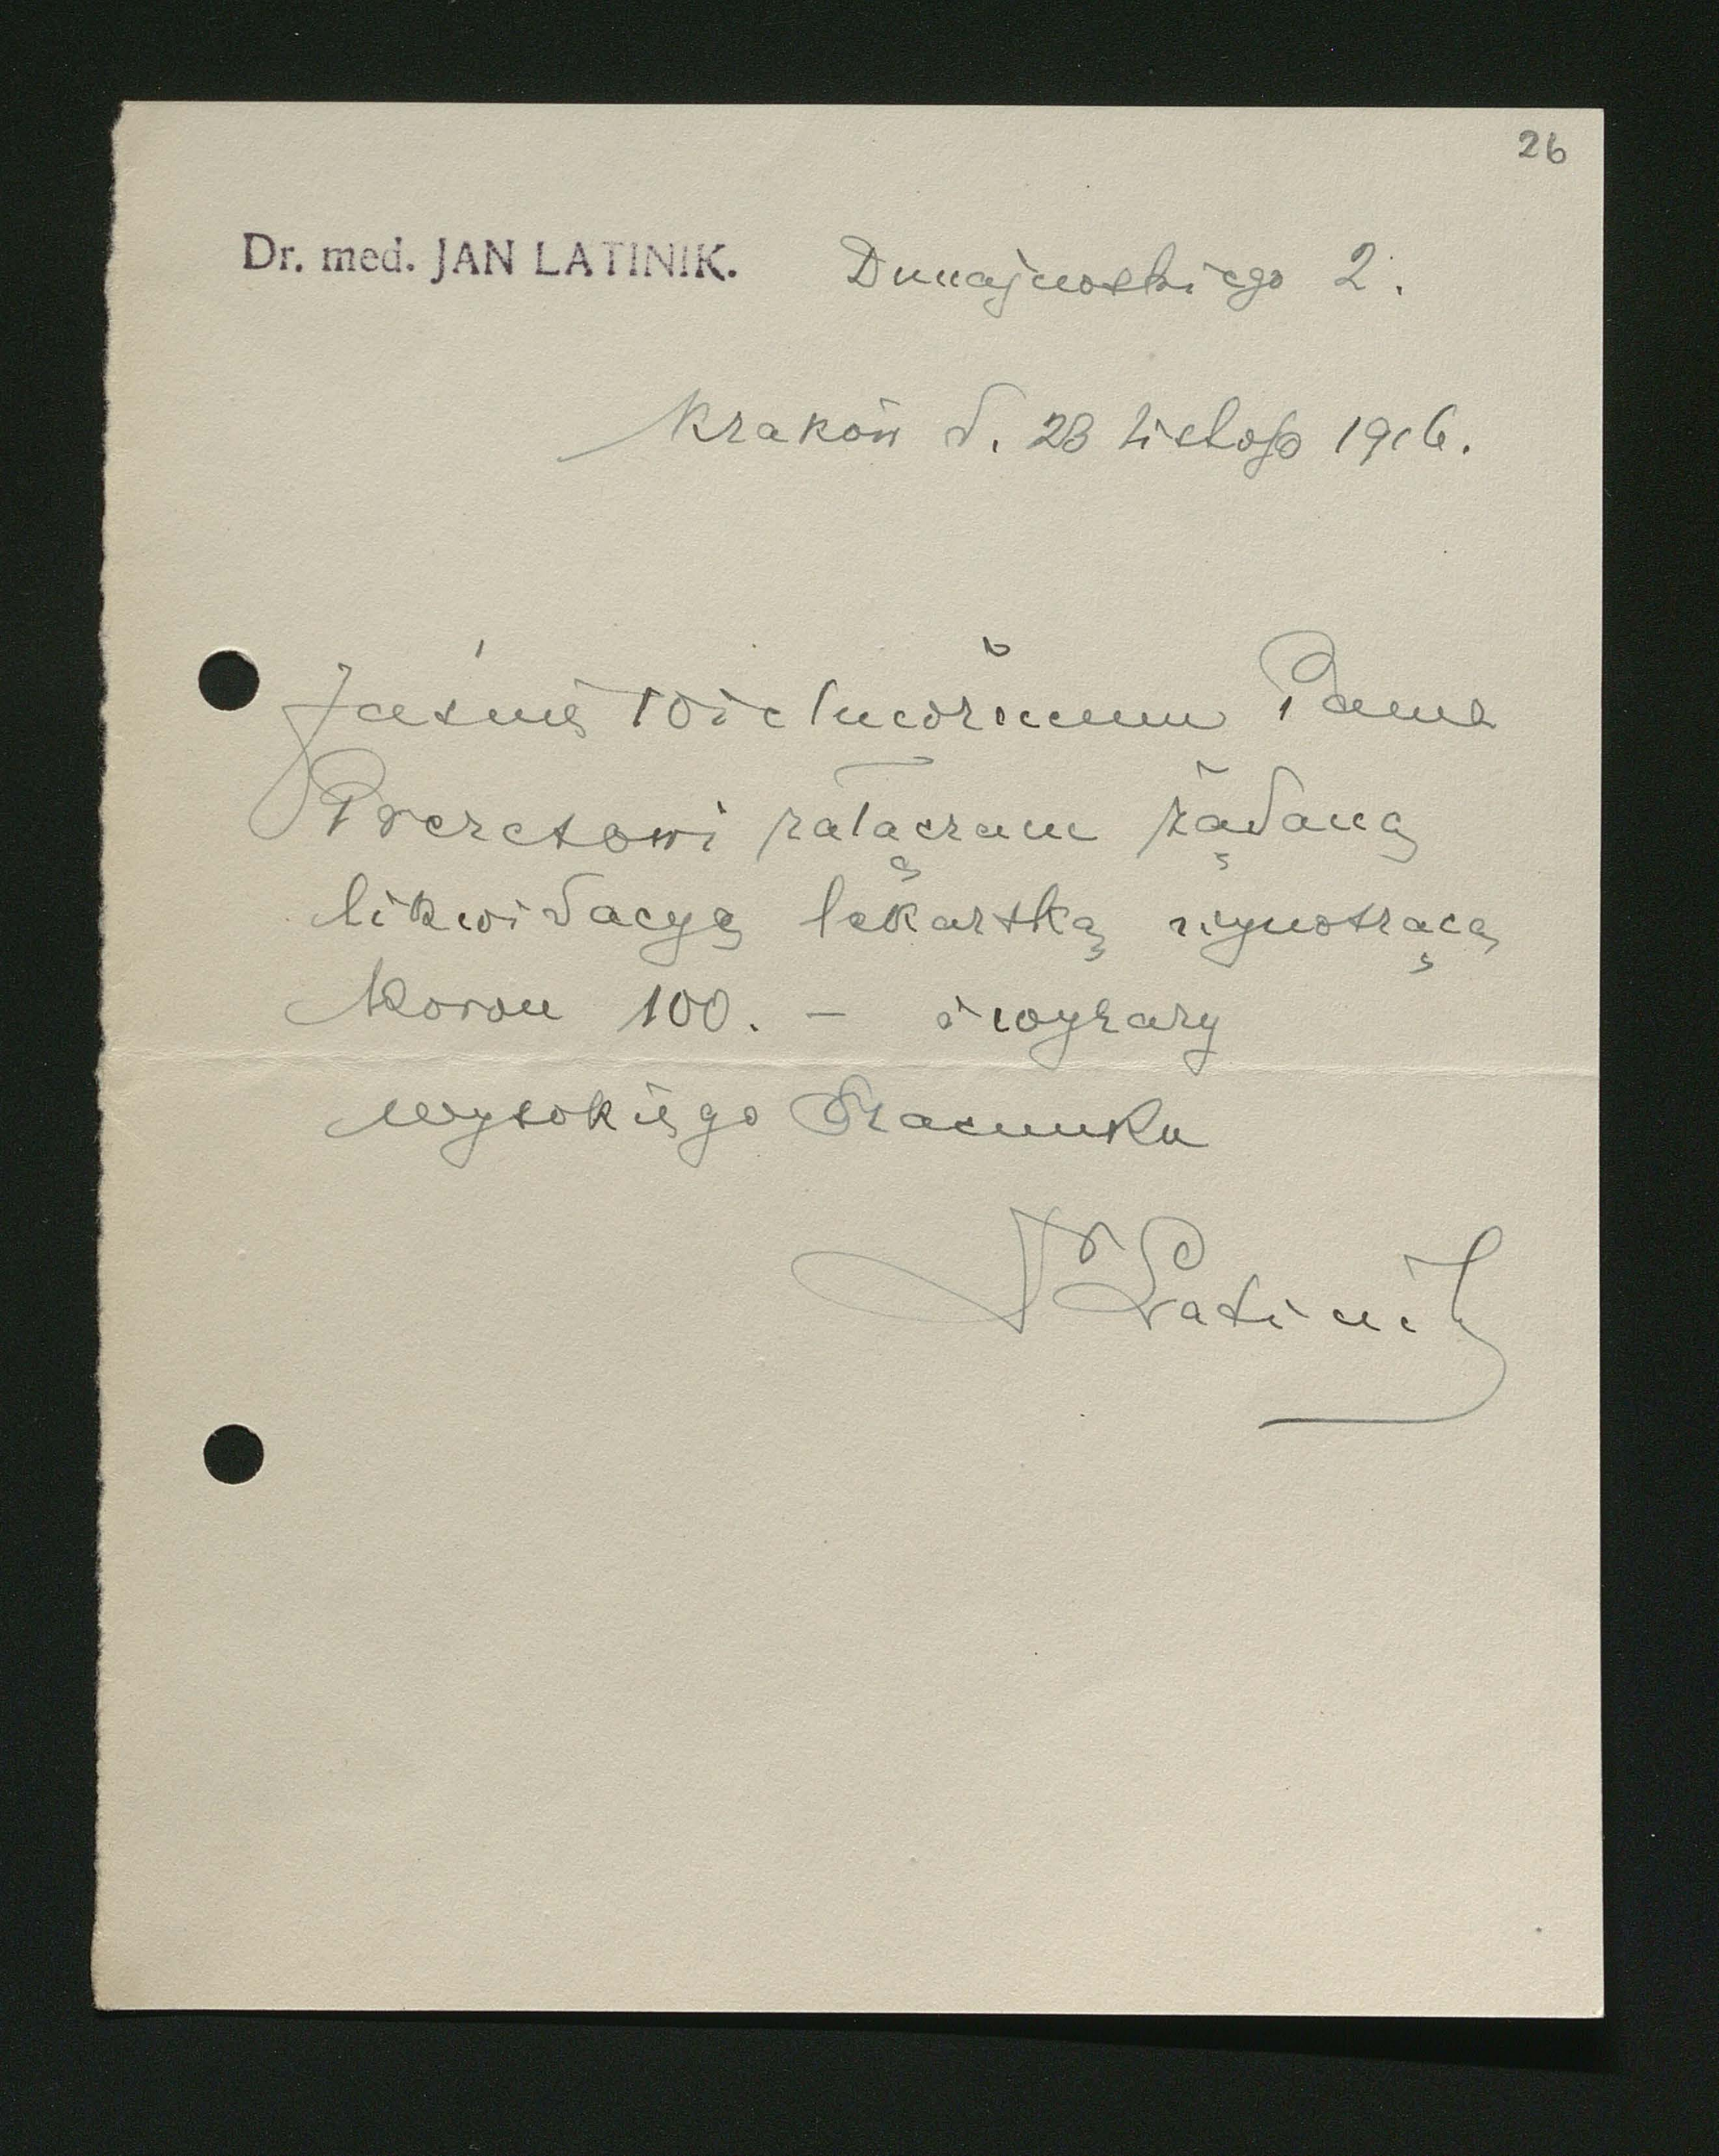 26
Dr. med. JAN LATINIK. Dunajewskiego 2.
Kraków d. 23 listop 1916.
Jaśnie Wielmożnemu Panu
Prezesowi załączam żądaną
likwidacyę lekarską wynoszącą
Koron 100. — i wyrazy
wysokiego Szacunku
Dr Latinik